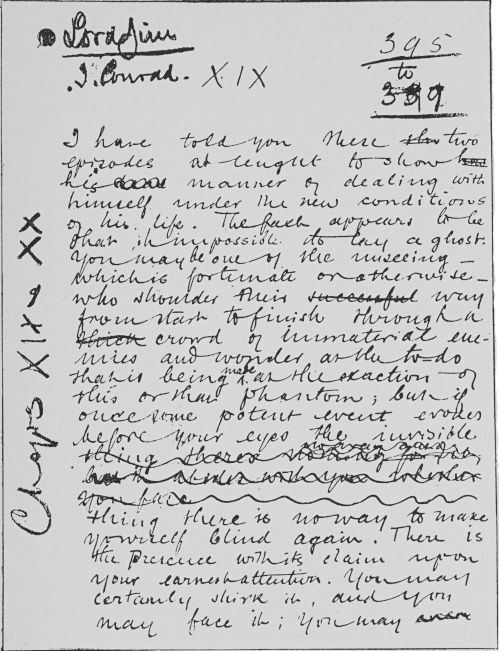 Lord Jim
J. Conrad. XIX
395
to
339
I have told you these two
episodes at lenght to show
his manner of dealing with
himself under the new conditions
of his life. The fact appears to be
that it impossible to lay a ghost.
You may be one of the unseeing –
which is fortunate or otherwise –
who shoulder their successful way
from start to finish through a
thick crowd of immaterial ene-
mies and wonder at the to-do
that is being made at the exaction of
this or that phantom; but if
once some potent event evokes
before your eyes the invisible
thing there is nothing for
whether
you face
thing there is no way to make
yourself blind again. There is
the presence with its claim upon
your earnest attention. You may
certainly shirk it, and you
may face it; you may
Chaps XIX & XX